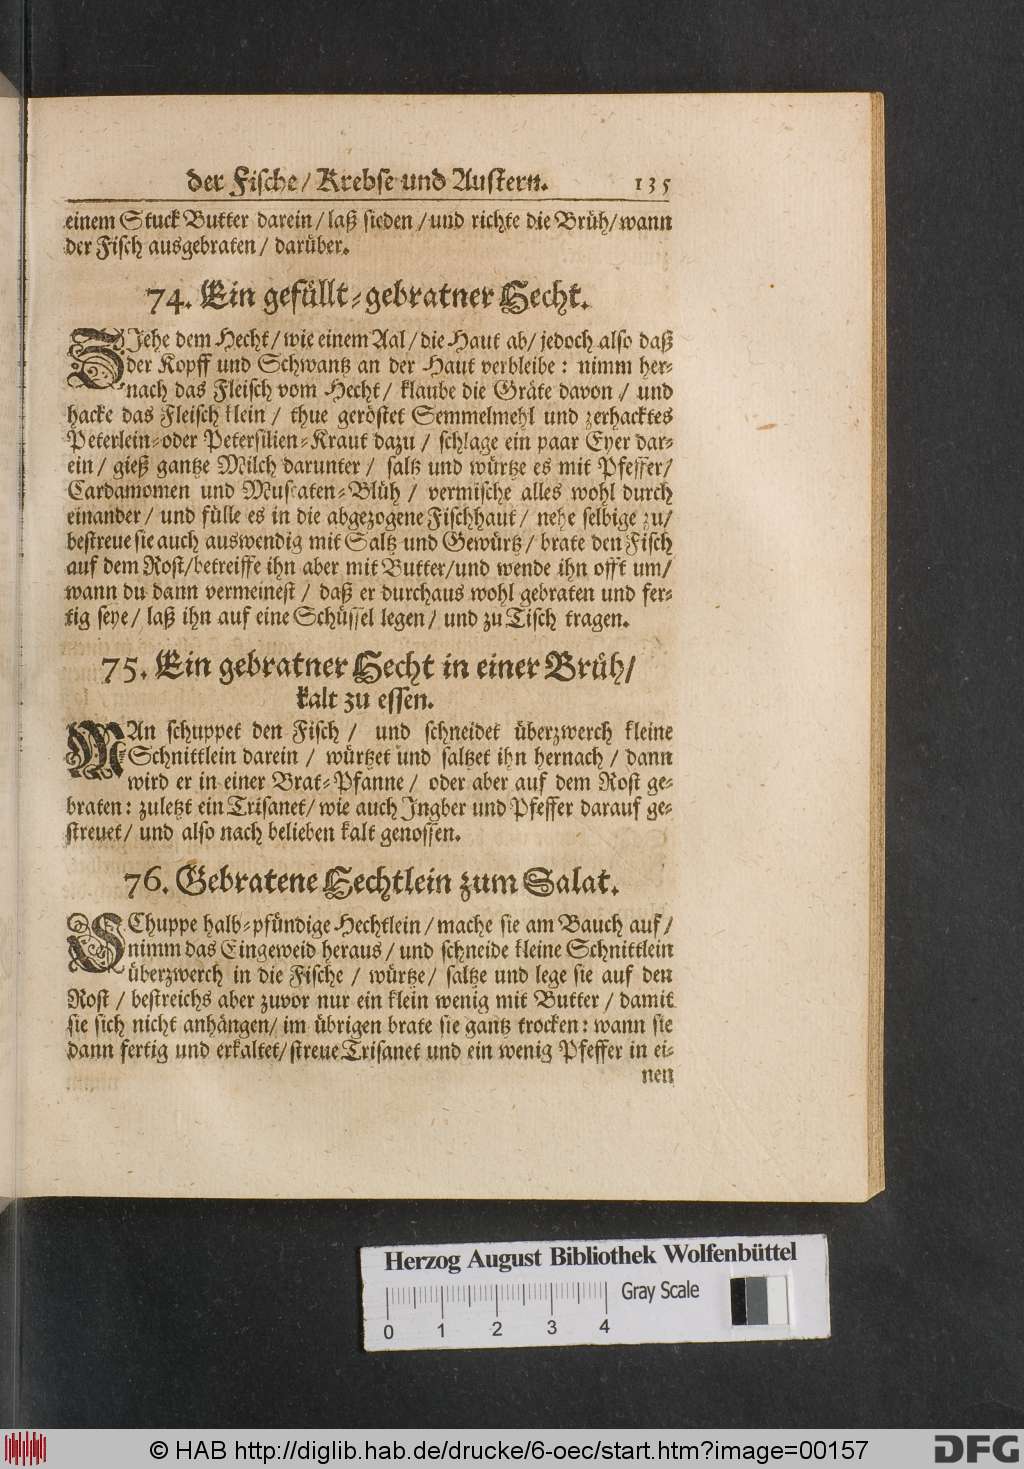 der Fische/ Krebse und Austern. 135
einem Stuck Butter darein/ laß sieden/ und richte die Brüh/ wann
der Fisch ausgebraten/ darüber.
74. Ein gefüllt-gebratner Hecht.
ZJehe dem Hecht/ wie einem Aal/ die Haut ab/ jedoch also daß
der Kopff und Schwantz an der Haut verbleibe: nimm her-
nach das Fleisch vom Hecht/ klaube die Gräte davon/ und
hacke das Fleisch klein/ thue geröstet Semmelmehl und zerhacktes
Peterlein-oder Petersilien-Kraut dazu/ schlage ein paar Eyer dar-
ein/ gieß gantze Milch darunter/ saltz und würtze es mit Pfeffer/
Cardamomen und Muscaten-Blüh/ vermische alles wohl durch
einander/ und fülle es in die abgezogene Fischhaut/ nehe selbige zu/
bestreue sie auch auswendig mit Saltz und Gewürtz/ brate den Fisch
auf dem Rost/ betreiffe ihn aber mit Butter/ und wende ihn offt um/
wann du dann vermeinest/ daß er durchaus wohl gebraten und fer-
tig seye/ laß ihn auf eine Schüssel legen/ und zu Tisch tragen.
75. Ein gebratner Hecht in einer Brüh/
kalt zu essen.
MAn schuppet den Fisch/ und schneidet überzwerch kleine
Schnittlein darein/ würtzet und saltzet ihn hernach/ dann
wird er in einer Brat-Pfanne/ oder aber auf dem Rost ge-
braten: zuletzt ein Trisanet/ wie auch Jngber und Pfeffer darauf ge-
streuet/ und also nach belieben kalt genossen.
76. Gebratene Hechtlein zum Salat.
SChuppe halb-pfündige Hechtlein/ mache sie am Bauch auf/
nimm das Eingeweid heraus/ und schneide kleine Schnittlein
überzwerch in die Fische/ würtze/ saltze und lege sie auf den
Rost/ bestreichs aber zuvor nur ein klein wenig mit Butter/ damit
sie sich nicht anhängen/ im übrigen brate sie gantz trocken: wann sie
dann fertig und erkaltet/ streue Trisanet und ein wenig Pfeffer in ei-
nen
Herzog August Bibliothek Wolfenbüttel
Gray Scale
0 1 2 3 4
© HAB http://diglib.hab.de/drucke/6-oec/start.htm?image=00157
DFG